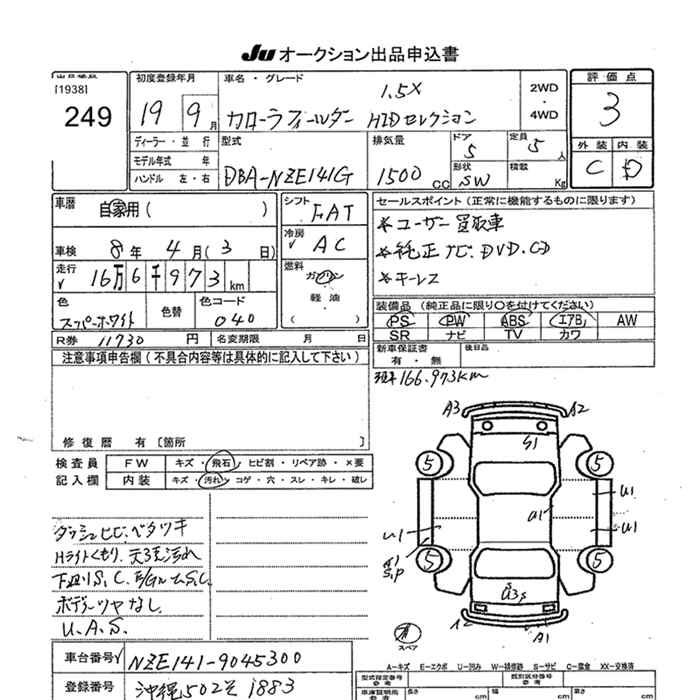 Ju オークション出品申込書
[1938]
249
初度登録年月
19 9月
車名・グレード
1.5X
カローラフィールダー HIDセレクション
2WD
・
4WD
評価点
3
外装 内装
C D
ディーラー・並行
モデル年式 年
ハンドル 左・右
型式
DBA-NZE141G
排気量
1500 cc
ドア
5
形状
SW
定員
5人
積載
Kg
車歴
自家用( )
車検 8年 4月( 3日)
走行
16万6千973km
シフト
FAT
冷房
AC
燃料
ガソリン
軽油
( )
セールスポイント(正常に機能するものに限ります)
*ユーザー買取車
*純正ナビ.DVD.CD
*キーレス
色
スーパーホワイト
色替
色コード
040
R券 11730円
名変期限 月 日
装備品(純正品に限り○を付けてください)
PS PW ABS エアB AW
SR ナビ TV カワ
新車保証書
有・無
後日品
注意事項申告欄(不具合内容等は具体的に記入して下さい)
修復歴 有〔箇所 〕
166.973km
検査員
記入欄
FW キズ・飛石・ヒビ割・リペア跡・×要
内装 キズ・汚れ・コゲ・穴・スレ・キレ・破レ
ダッシュヒビ.ベタツキ
Hライトくもり.天張汚れ
下廻りS.C.E/GルームS.C
ボデーツヤなし
U.A.S.
A3 A2
S1
5 5
U1
U1 A1 U1
A1
S.P
5 5
S
U3s
A2 A1
スペア
車台番号 NZE141-9045300
登録番号 沖縄502そ1883
A-キズ E-エクボ U-凹み W-補修跡 S-サビ C-腐食 XX-交換済
型式指定番号
参考
類別区分番号
参考
車庫証明用
長さ cm
幅 cm
高さ cm